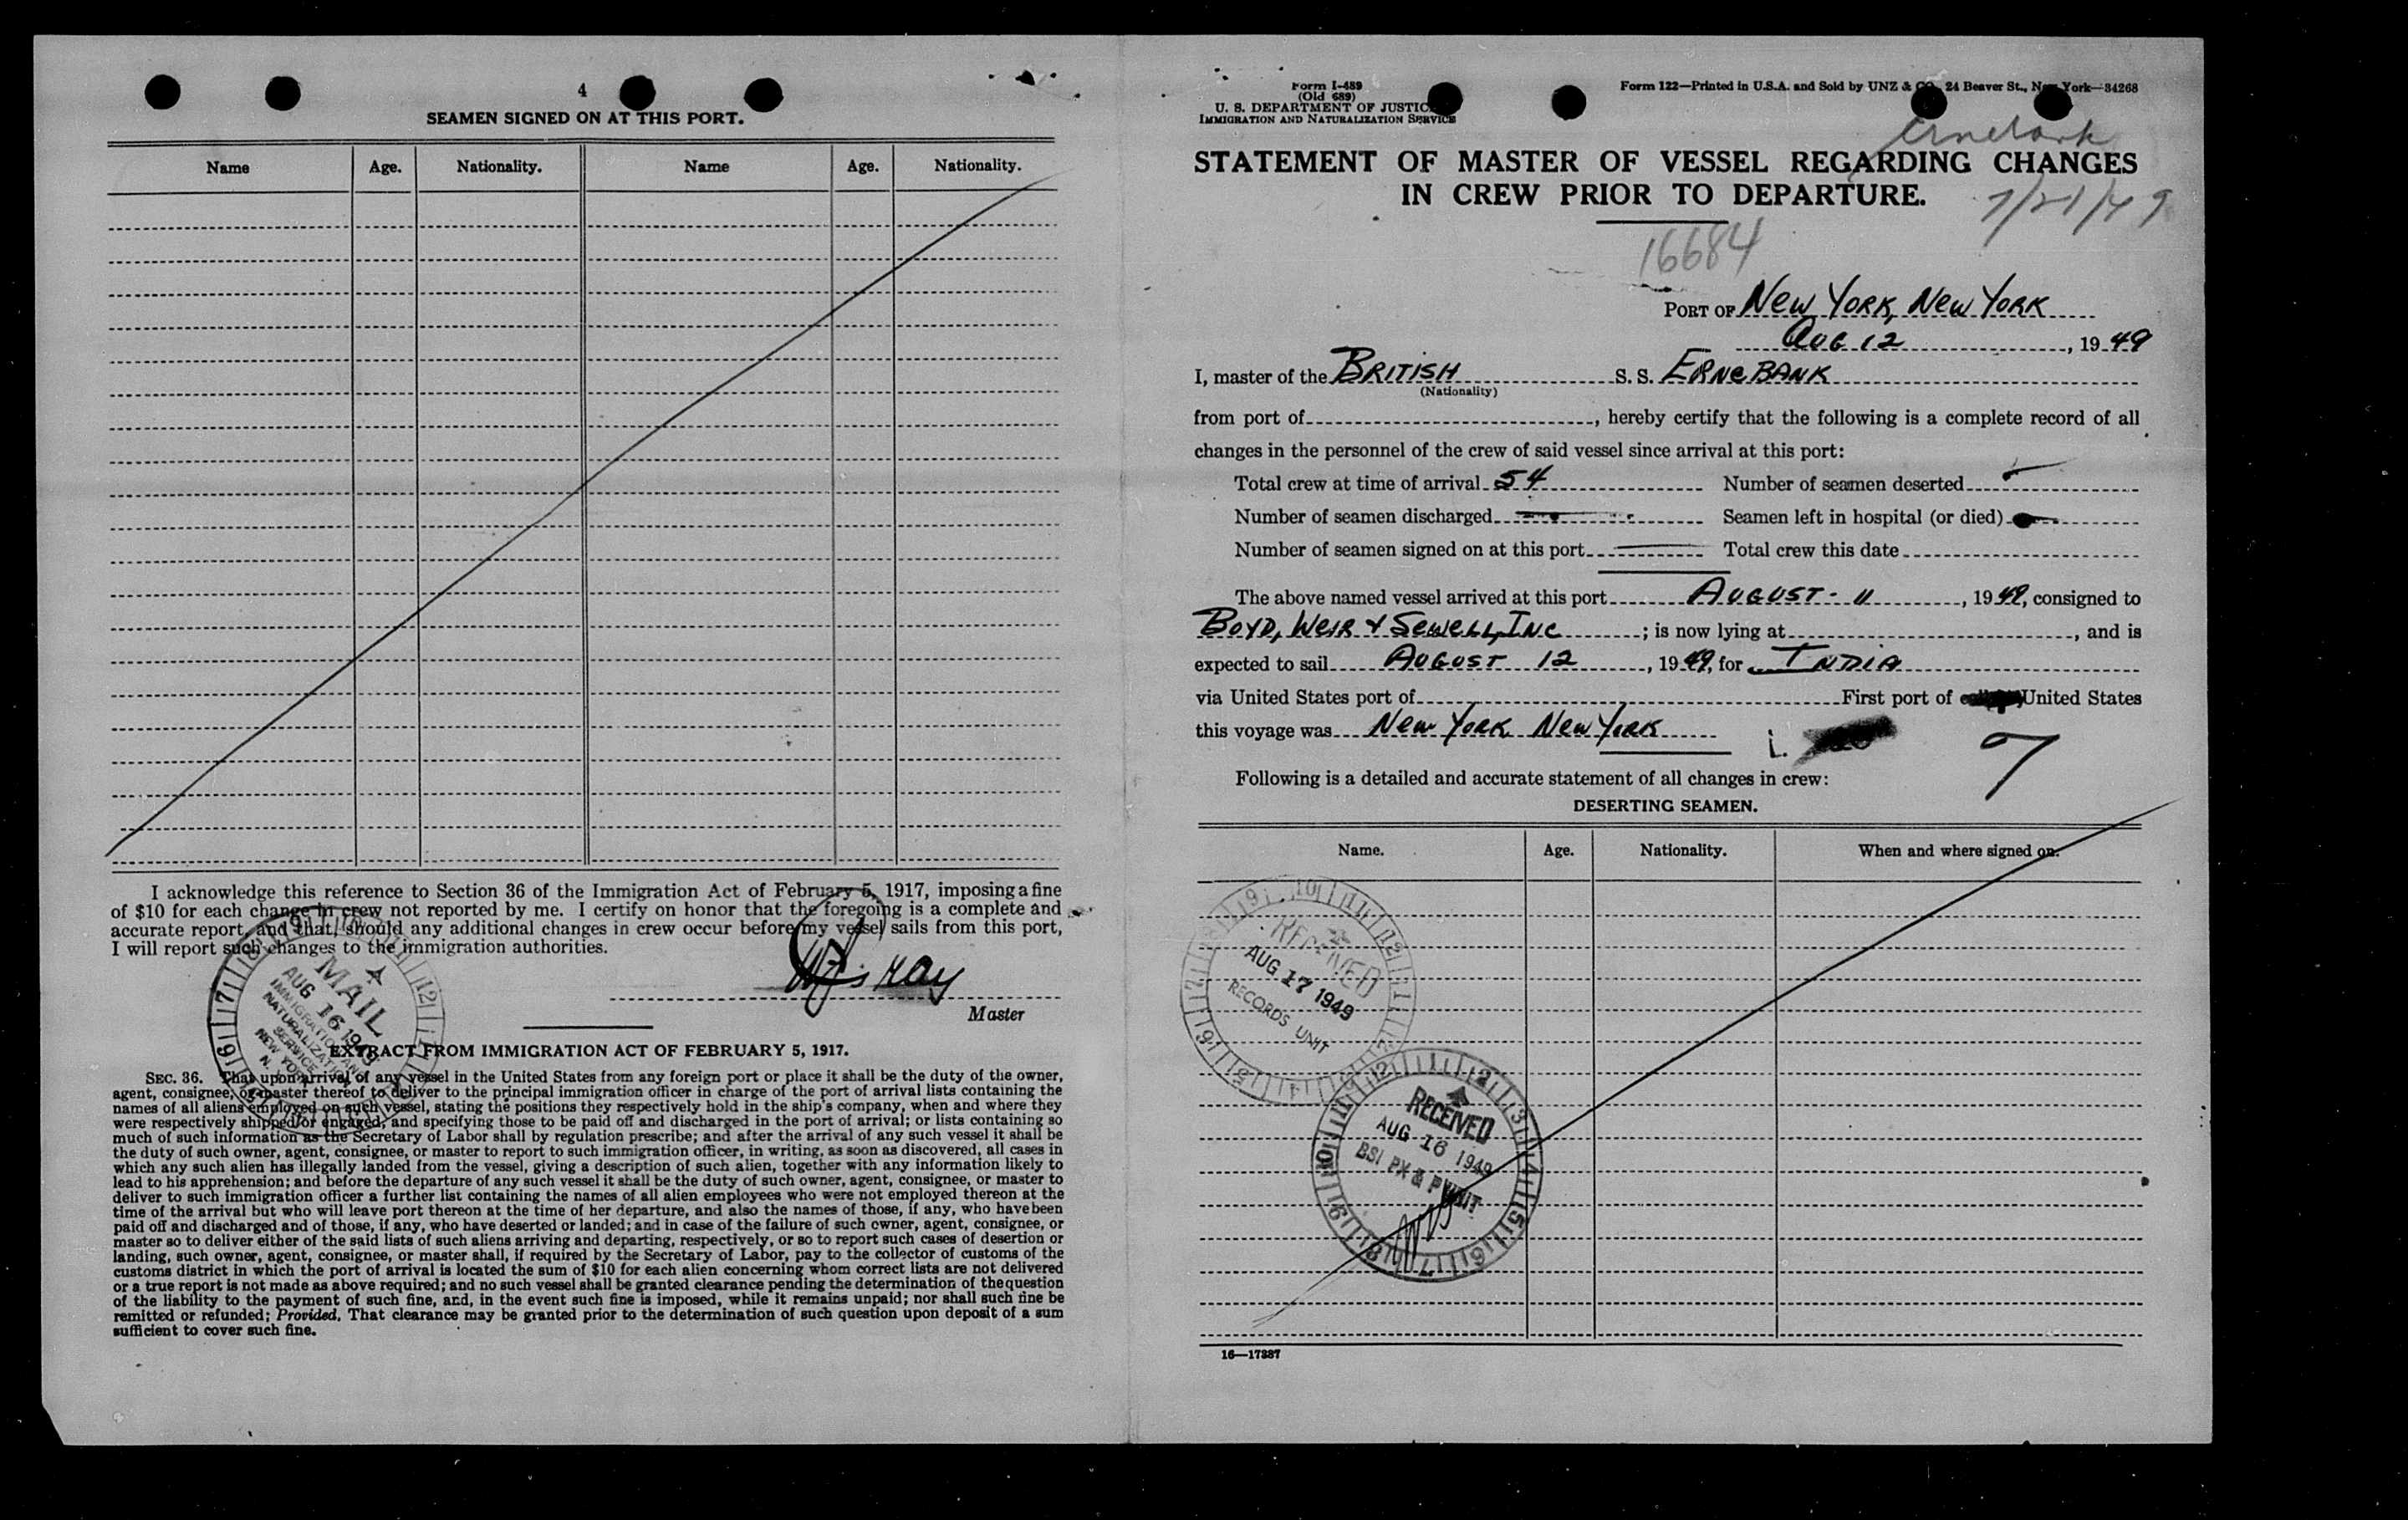 4
SEAMEN SIGNED ON AT THIS PORT.
Name Age. Nationality. Name Age. Nationality.
I acknowledge this reference to Section 36 of the Immigration Act of February 5, 1917, imposing a fine
of $10 for each change in crew not reported by me. I certify on honor that the foregoing is a complete and
accurate report, and that, should any additional changes in crew occur before my vessel sails from this port,
I will report such changes to the immigration authorities.
Ray
Master
MAIL
AUG 16 1949
IMMIGRATION AND
NATURALIZATION
SERVICE
NEW YORK
N.
EXTRACT FROM IMMIGRATION ACT OF FEBRUARY 5, 1917.
SEC. 36. That upon arrival of any vessel in the United States from any foreign port or place it shall be the duty of the owner,
agent, consignee, or master thereof to deliver to the principal immigration officer in charge of the port of arrival lists containing the
names of all aliens employed on such vessel, stating the positions they respectively hold in the ship's company, when and where they
were respectively shipped or engaged, and specifying those to be paid off and discharged in the port of arrival; or lists containing so
much of such information as the Secretary of Labor shall by regulation prescribe; and after the arrival of any such vessel it shall be
the duty of such owner, agent, consignee, or master to report to such immigration officer, in writing, as soon as discovered, all cases in
which any such alien has illegally landed from the vessel, giving a description of such alien, together with any information likely to
lead to his apprehension; and before the departure of any such vessel it shall be the duty of such owner, agent, consignee, or master to
deliver to such immigration officer a further list containing the names of all alien employees who were not employed thereon at the
time of the arrival but who will leave port thereon at the time of her departure, and also the names of those, if any, who have been
paid off and discharged and of those, if any, who have deserted or landed; and in case of the failure of such owner, agent, consignee, or
master so to deliver either of the said lists of such aliens arriving and departing, respectively, or so to report such cases of desertion or
landing, such owner, agent, consignee, or master shall, if required by the Secretary of Labor, pay to the collector of customs of the
customs district in which the port of arrival is located the sum of $10 for each alien concerning whom correct lists are not delivered
or a true report is not made as above required; and no such vessel shall be granted clearance pending the determination of the question
of the liability to the payment of such fine, and, in the event such fine is imposed, while it remains unpaid; nor shall such fine be
remitted or refunded; Provided, That clearance may be granted prior to the determination of such question upon deposit of a sum
sufficient to cover such fine.
Form I-489
(Old 689)
U. S. DEPARTMENT OF JUSTICE
IMMIGRATION AND NATURALIZATION SERVICE
Form 122—Printed in U.S.A. and Sold by UNZ & CO., 24 Beaver St., New York—34268
STATEMENT OF MASTER OF VESSEL REGARDING CHANGES
IN CREW PRIOR TO DEPARTURE.
7/21/49
16684
PORT OF NEW YORK, NEW YORK
AUG 12, 1949
I, master of the BRITISH S. S. ERNEBANK
(Nationality)
from port of, hereby certify that the following is a complete record of all
changes in the personnel of the crew of said vessel since arrival at this port:
Total crew at time of arrival 54 Number of seamen deserted
Number of seamen discharged Seamen left in hospital (or died)
Number of seamen signed on at this port Total crew this date
The above named vessel arrived at this port AUGUST - 11, 1949, consigned to
BOYD, WEIR & SEWELL, INC; is now lying at, and is
expected to sail AUGUST 12, 1949, for INDIA
via United States port of First port of United States
this voyage was New York New York
7
Following is a detailed and accurate statement of all changes in crew:
DESERTING SEAMEN.
Name. Age. Nationality. When and where signed on.
RECEIVED
AUG 17 1949
RECORDS UNIT
RECEIVED
AUG 16 1949
BSI PX & P UNIT
16—17387